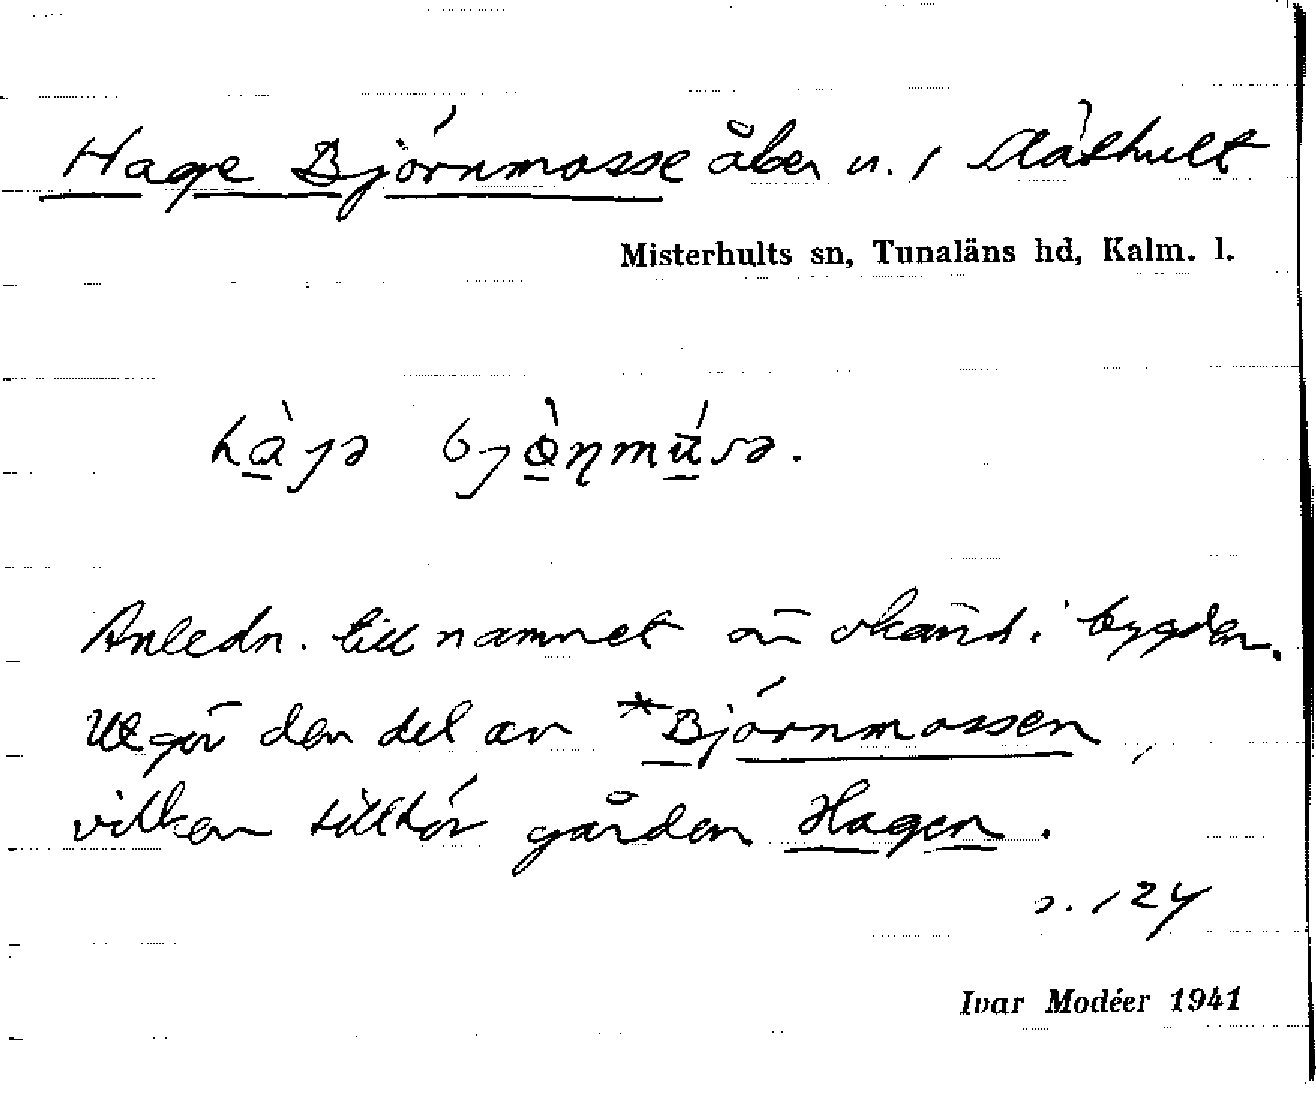 Hage Björnmosse åker n. 1 Släthult
Misterhults sn, Tunaläns hd, Kalm. l.
hàgə bjònmúsə.
Anledn. till namnet är okänd i bygden.
Utgör den del av *Björnmossen,
vilken tillhör gården Hagen.
s. 124
Ivar Modéer 1941